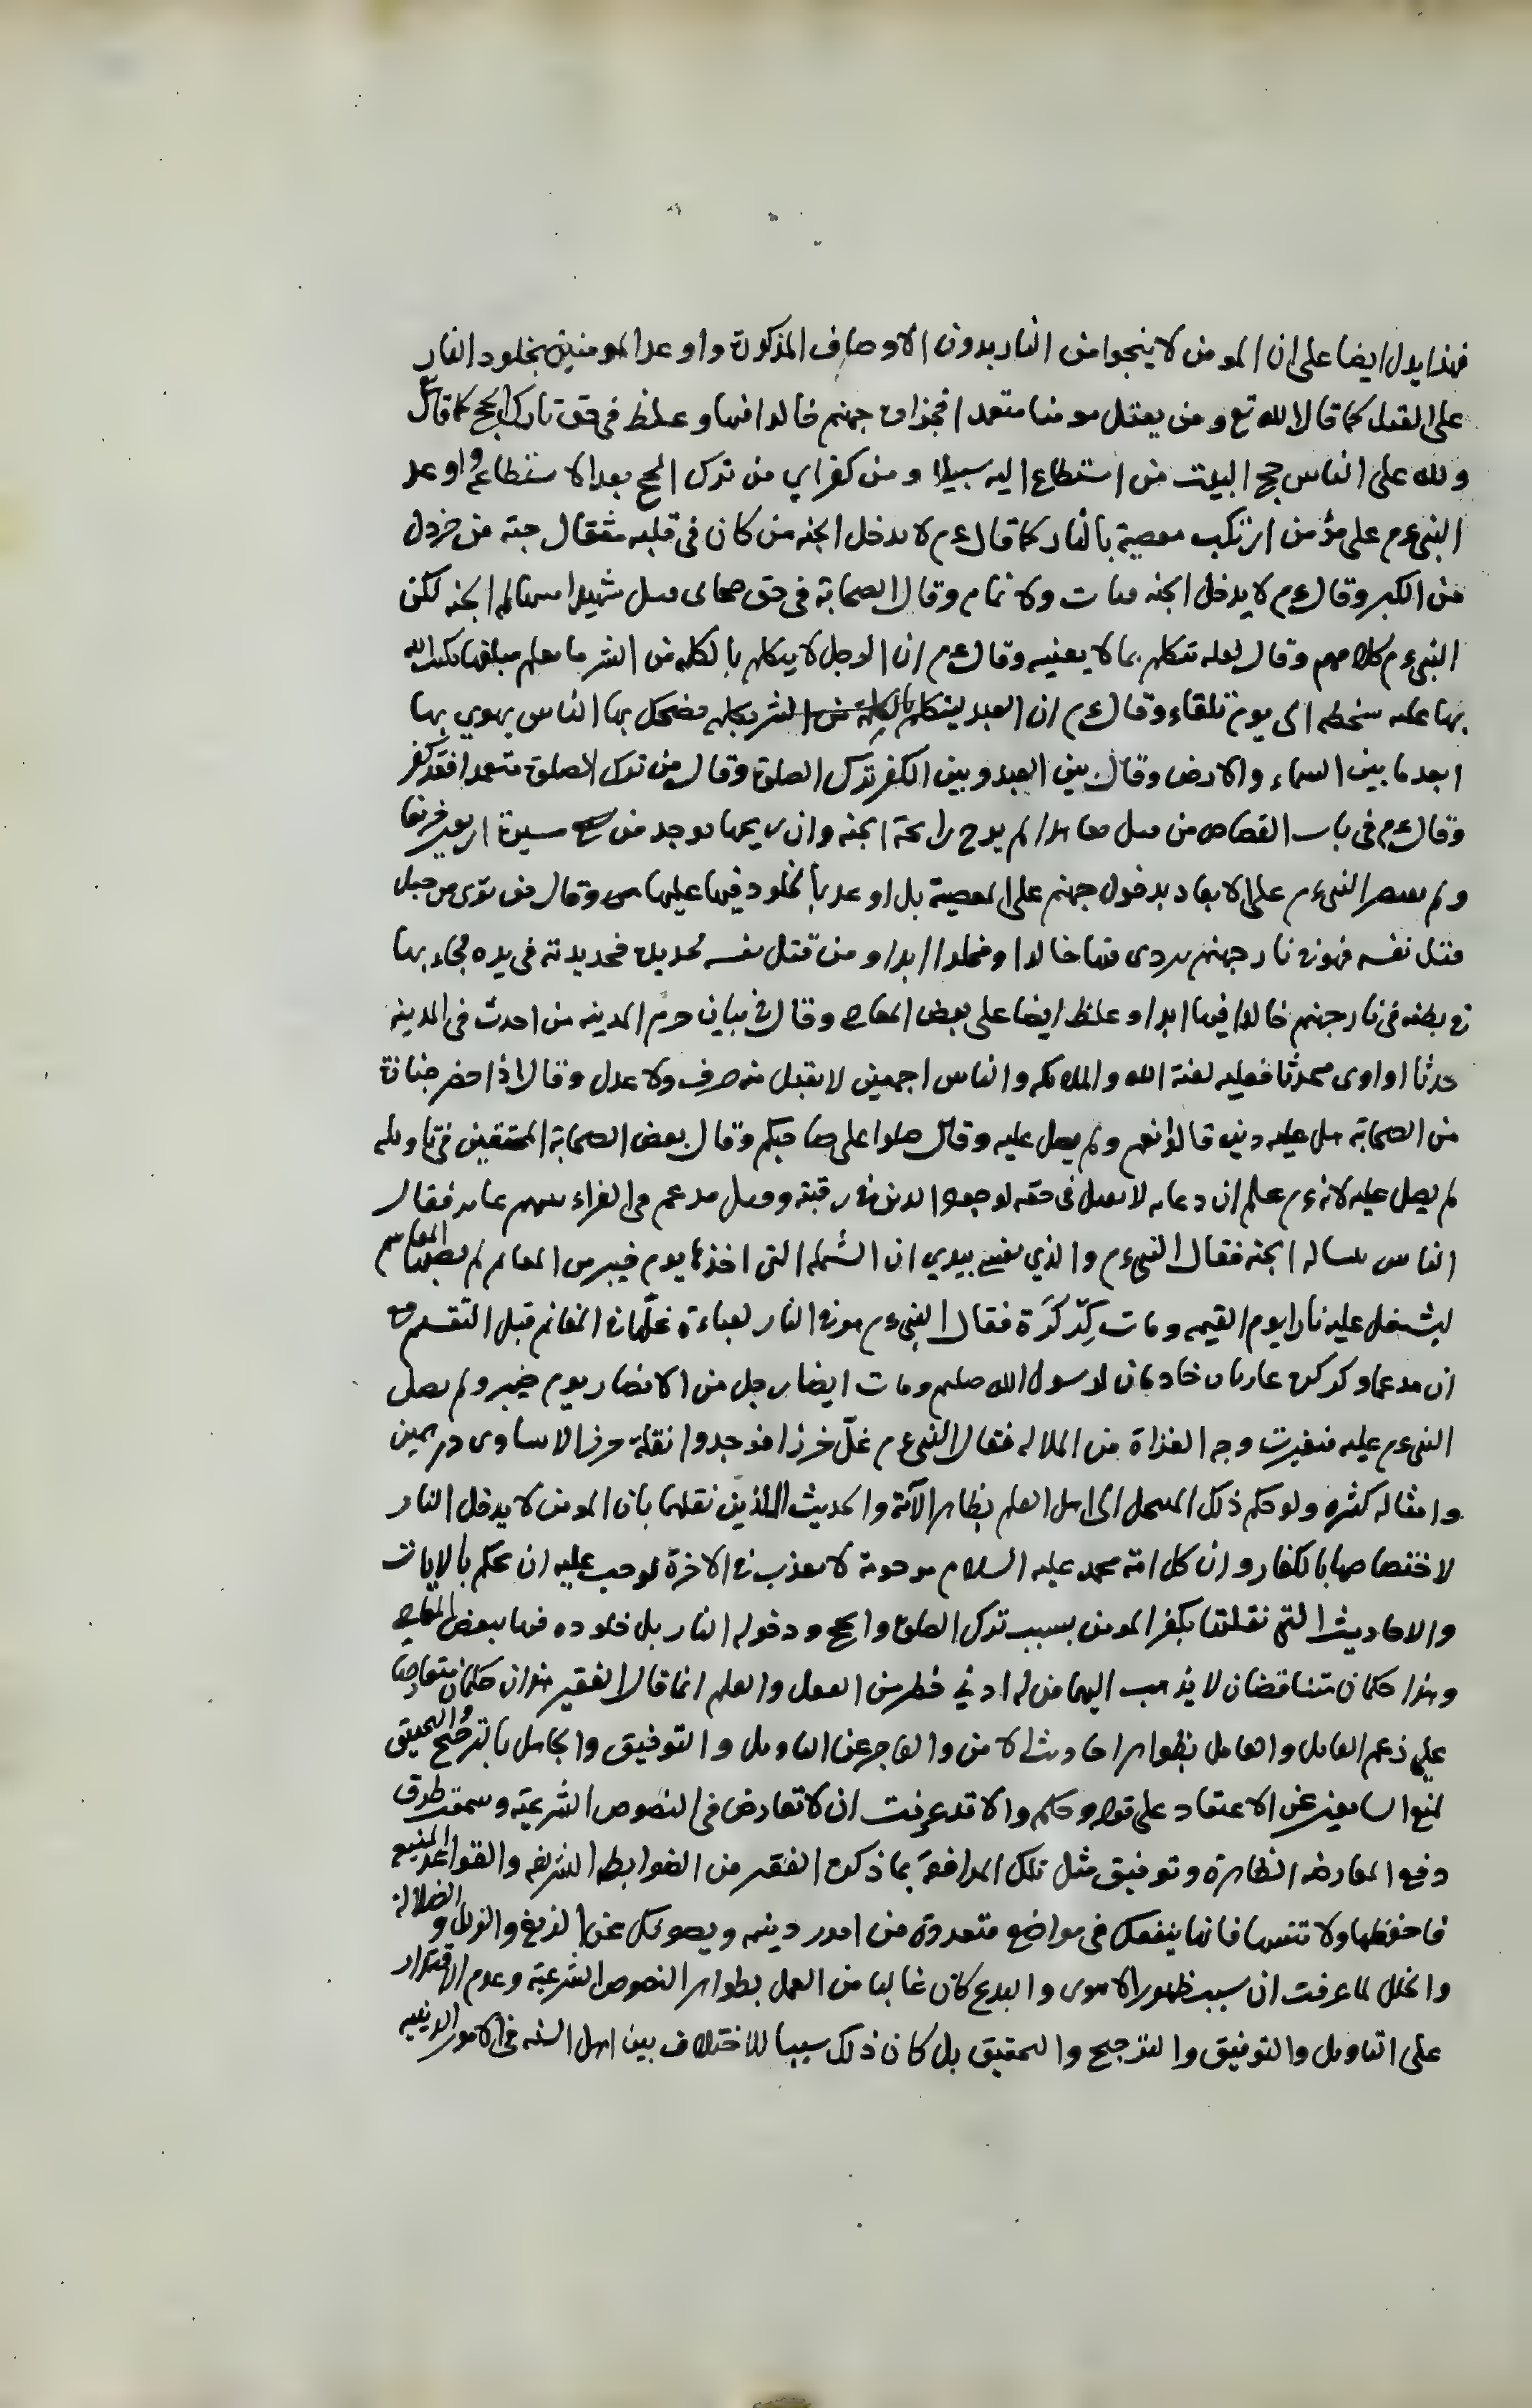 فهذا يدل ايضا على ان المومن لا ينجوا من النار بدون الاوصاف المذكورة واوعد المومنين بخلود النار
على القتل كما قال الله تع ومن يقتل مومنا متعمدا فجزاؤه جهنم خالدا فيها وغلظ فى حق تارك الحج كما قال تع
ولله على الناس حج البيت من استطاع اليه سبيلا ومن كفر اي من ترك الحج بعد الاستطاعة واوعد
النبى ءم على مؤمن ارتكب معصية بالنار كما قال ءم لا يدخل الجنه من كان فى قلبه مثقال حبة من خردل
من الكبر وقال ءم لا يدخل الجنه قتات ولا نمام وقال الصحابة فى حق صحابى قتل شهيدا هنيئا له الجنه لكن
النبى ءم كلامهم وقال لعله تتكلم بما لا يعنيه وقال ءم ان الرجل لا يتكلم بالكلمه من الشر ما يعلم مبلغها يكتب الله
بها عليه سخطه الى يوم تلقاء وقال ءم ان العبد ليتكلم بالكلمة من الشر يضحك بها الناس يهوي بها
ابعد ما بين السماء والارض وقال بين العبد وبين الكفر ترك الصلوة وقال من ترك الصلوة متعمدا فقد كفر
وقال ءم فى باب القصاص من قتل معاهدا لم يرح رايحة الجنه وان ريحها توجد من مسيرة اربعين خريفا
ولم يقصر النبى ءم على الايعاد بدخول جهنم على المعصية بل اوعد بالخلود فيها عليها وقال من تردى من جبل
فقتل نفسه فهو فى نار جهنم يتردى فيها خالدا ومخلدا ابدا ومن قتل نفسه بحديدة فحديدته فى يده يجاء بها
فى بطنه فى نار جهنم خالدا فيها ابدا وغلظ ايضا على بعض المعاصى وقال فى بيان حرم المدينه من احدث فى المدينه
حدثا او اوى محدثا فعليه لعنة الله والملائكه والناس اجمعين لا يقبل منه صرف ولا عدل وقال اذا حضر جنازة
من الصحابة هل عليه دين قالوا نعم ولم يصل عليه وقال صلوا على صاحبكم وقال بعض الصحابة المحققين فى تاويله
لم يصل عليه لانه ءم علم ان دعاءه لا يقبل فى حقه لوجود الدين فى رقبته وقتل مدعم فى الغزاء بسهم عاير فقال
الناس هنيئا له الجنه فقال النبى ءم والذي نفسى بيدي ان الشمله التى اخذها يوم خيبر من المغانم لم يصبها المقاسم
ليشتعل عليه نارا يوم القيمه ومات كِرْكَرَة فقال النبى ءم هو فى النار لعباءة غلّها فى المغانم قبل التقسيم مع
ان مدعما وكركرة كانا خادمان لرسول الله صلعم ومات ايضا رجل من الانصار يوم خيبر ولم يصل
النبى ءم عليه فتغيرت وجه الغزاة من الملاله فقال النبى ءم غلّ خرزا فوجدوا خرزا لا يساوى درهمين
وامثاله كثيره ولو حكم ذلك الى اهل العلم بظاهر الآية والحديث اللذين نقلهما بان المومن لا يدخل النار
لاختصاصها بالكفار وان كل امة محمد عليه السلام مرحومة لا يعذب فى الاخرة لوجب عليه ان يحكم بالايات
والاحاديث التى نقلتها بكفر المومن بسبب ترك الصلوة والحج ودخوله النار بل خلوده فيها ببعض المعاصى
وهذا حكمان متناقضان لا يذهب اليهما من له ادنى خطر من العقل والعلم انما قال الفقير هذان حكمان متعارضان
على زعم القايل والعامل بظواهر احاديث الامن والعاجز عن التاويل والتوفيق والجاهل بالترجيح والتحقيق
لمنع السامعين عن الاعتماد على قوله وحكمه والا قد عرفت ان لا تعارض فى النصوص الشرعية وسمعت طرق
دفع المعارضه الظاهرة وتوفيق مثل تلك المدافعة بما ذكره الفقير من الضوابط الشريفه والقواعد المنيع
فاحفظها ولا تنسها فانها ينفعك فى مواضع متعددة من امور دينيه ويصونك عن الزيغ والزلل والضلالة
والخلل لما عرفت ان سبب ظهور الاهوى والبدع كان غالبا من العمل بظواهر النصوص الشرعية وعدم الاقتدار
على التاويل والتوفيق والترجيح والتحقيق بل كان ذلك سببا للاختلاف بين اهل السنه فى الامور الدينيه